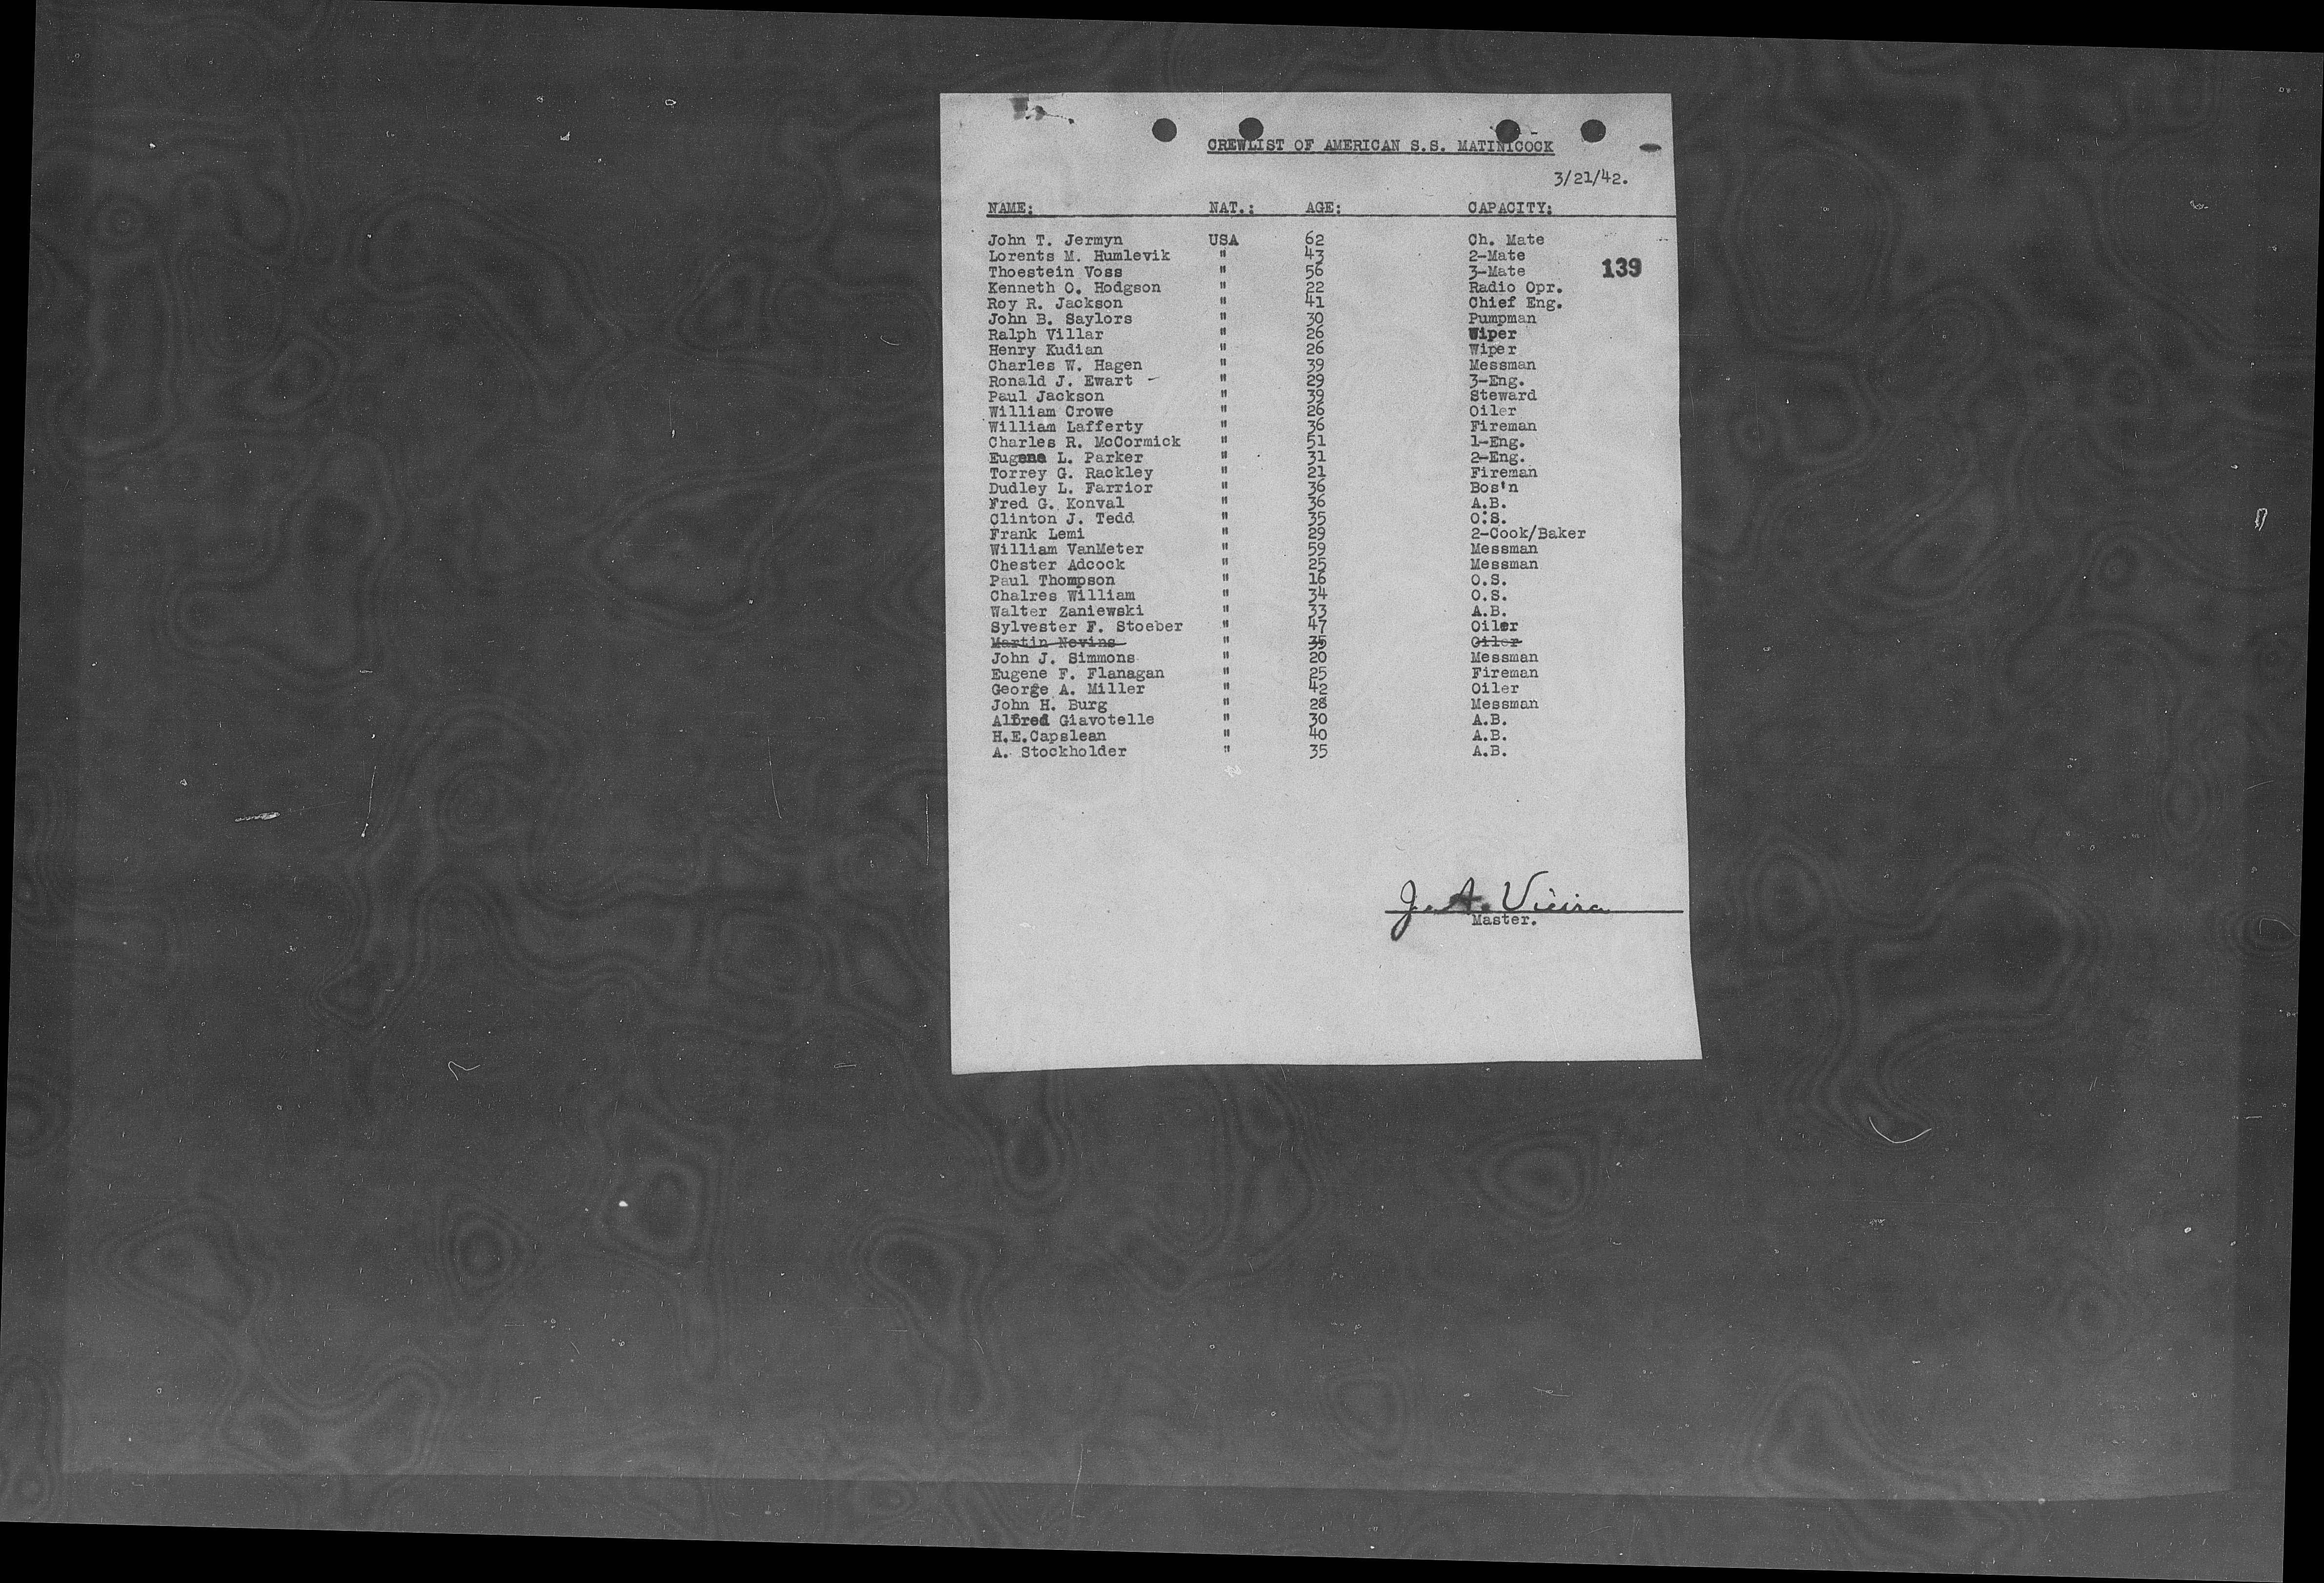 CREWLIST OF AMERICAN S.S. MATINICOCK
3/21/42.
NAME: NAT.: AGE: CAPACITY:
John T. Jermyn USA 62 Ch. Mate
Lorents M. Humlevik " 43 2-Mate
Thoestein Voss " 56 3-Mate 139
Kenneth O. Hodgson " 22 Radio Opr.
Roy R. Jackson " 41 Chief Eng.
John B. Saylors " 30 Pumpman
Ralph Villar " 26 Wiper
Henry Kudian " 26 Wiper
Charles W. Hagen " 39 Messman
Ronald J. Ewart " 29 3-Eng.
Paul Jackson " 39 Steward
William Crowe " 26 Oiler
William Lafferty " 36 Fireman
Charles R. McCormick " 51 1-Eng.
Eugene L. Parker " 31 2-Eng.
Torrey G. Rackley " 21 Fireman
Dudley L. Farrior " 36 Bos'n
Fred G. Konval " 36 A.B.
Clinton J. Tedd " 35 O.S.
Frank Lemi " 29 2-Cook/Baker
William VanMeter " 59 Messman
Chester Adcock " 25 Messman
Paul Thompson " 16 O.S.
Chalres William " 34 O.S.
Walter Zaniewski " 33 A.B.
Sylvester F. Stoeber " 47 Oiler
Martin Nevins " 35 Oiler
John J. Simmons " 20 Messman
Eugene F. Flanagan " 25 Fireman
George A. Miller " 42 Oiler
John H. Burg " 28 Messman
Alfred Giavotelle " 30 A.B.
H.E.Capslean " 40 A.B.
A. Stockholder " 35 A.B.
J. A. Vieira
Master.